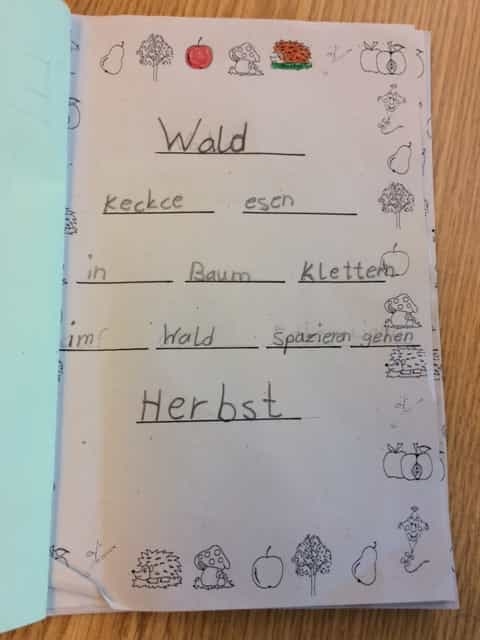 Wald
Keckce esen
in Baum Klettern
im Wald Spazieren gehen
Herbst